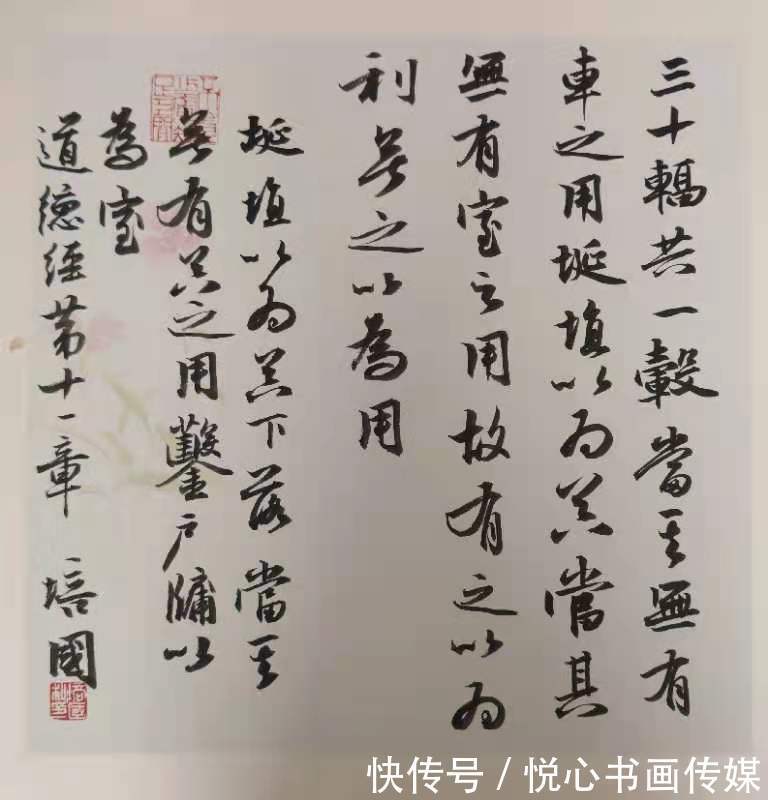 三十輻共一轂當其無有
車之用埏埴以為器當其
無有室之用故有之以為
利無之以為用
埏埴以為器下落當其
無有器之用鑿戶牖以
為室
道德經第十一章 培國
快传号 / 悦心书画传媒